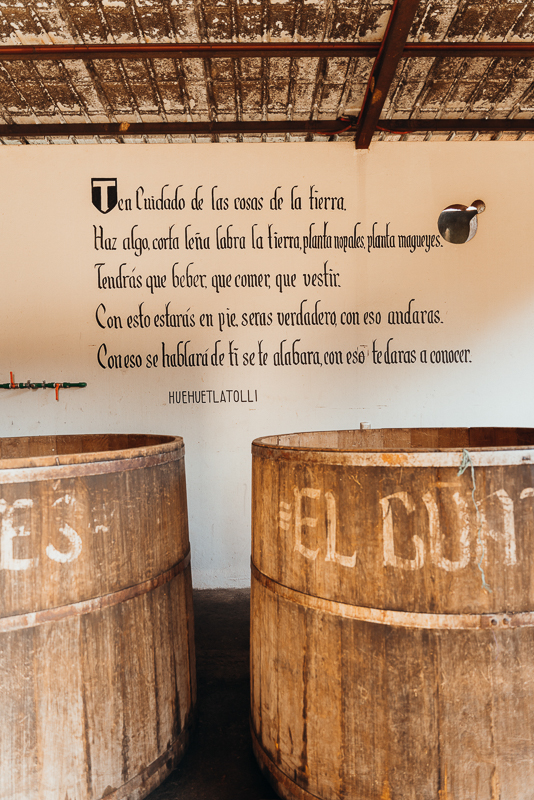 Ten Cuidado de las cosas de la tierra.
Haz algo, corta leña labra la tierra, planta nopales, planta magueyes.
Tendrás que beber, que comer, que vestir.
Con esto estarás en pie, seras verdadero, con eso andaras.
Con eso se hablará de ti se te alabara, con eso te daras a conocer.
HUEHUETLATOLLI
ES-
=EL CUA